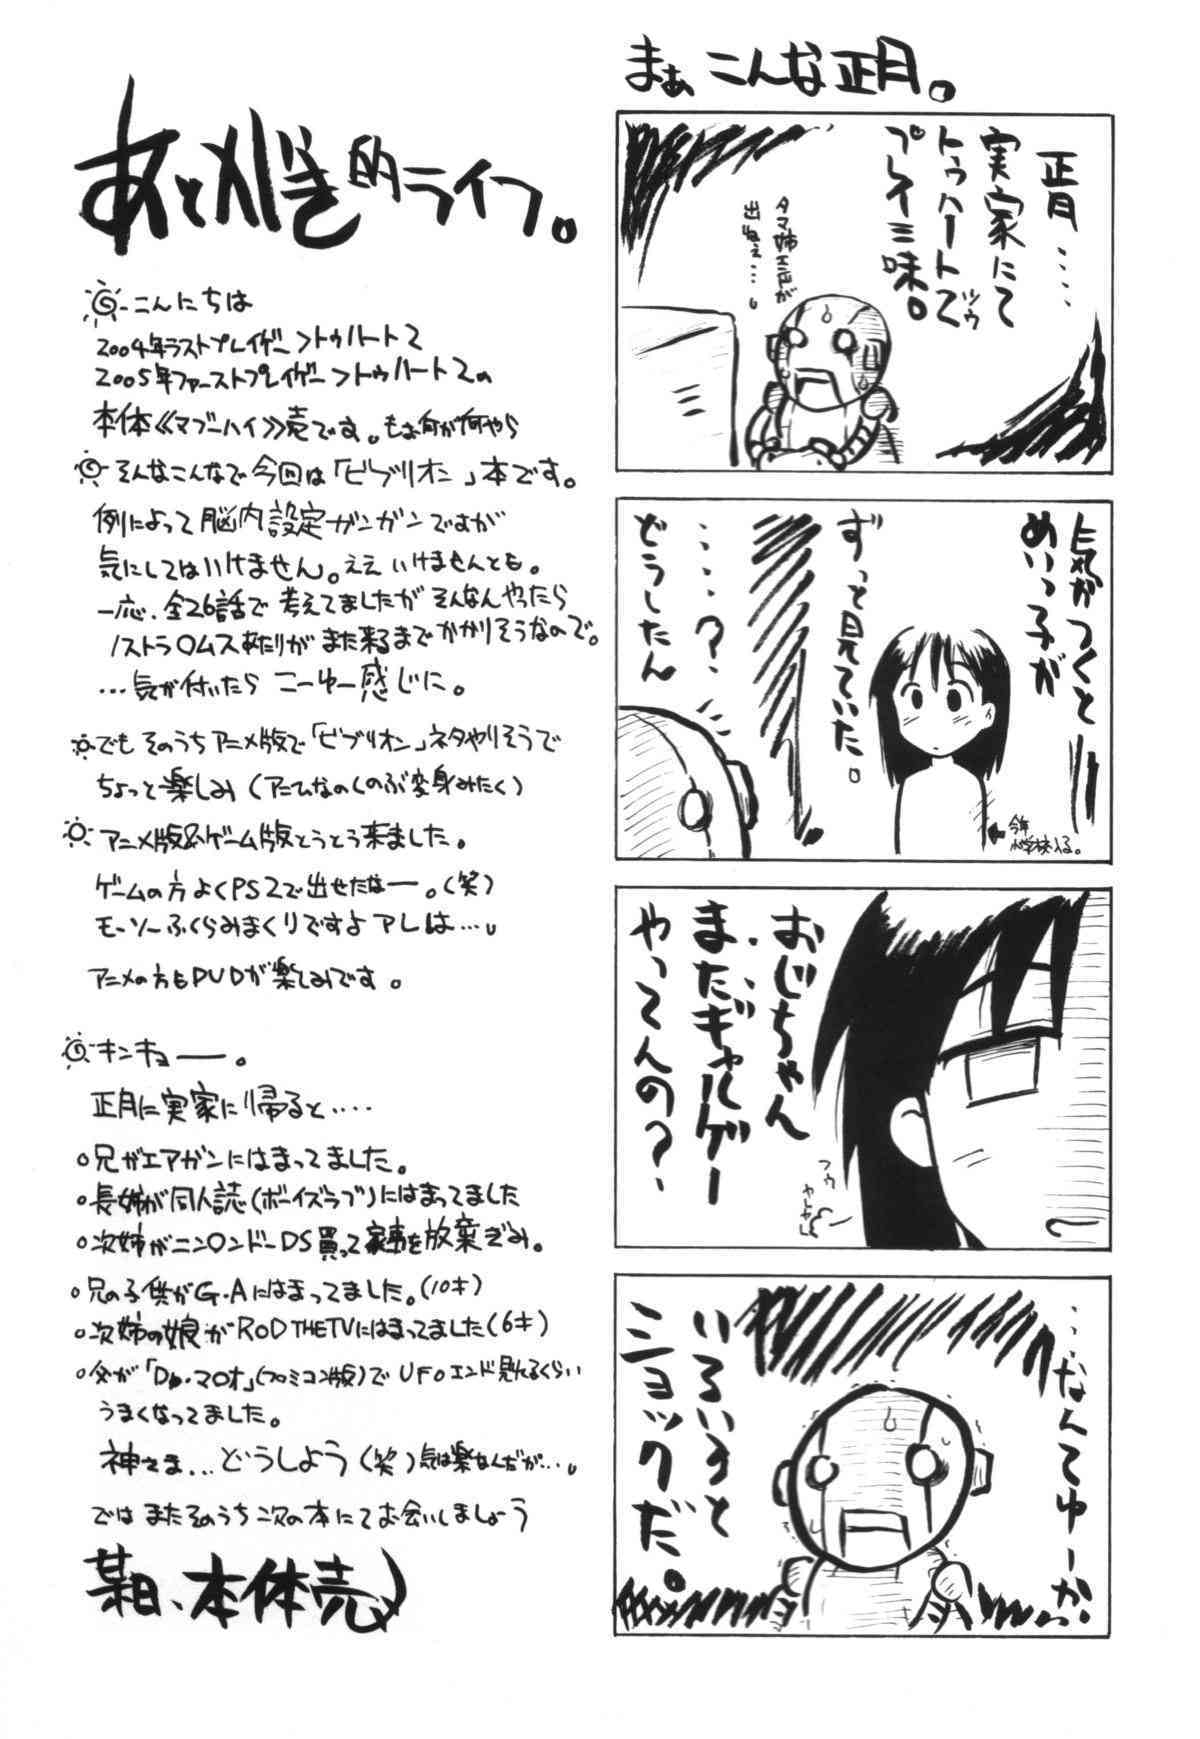 まぁ こんな正月。
正月‥‥
実家にて
トゥハートで
ツゥ
プレイ三味。
タマ姉エンドが
出ねぇ…。
気がつくと
めいっ子が
ずっと見ていた。
‥‥?
どうしたん
今年
小学校入る。
おじちゃん
またギャルゲー
やってんの?
フゥ
やれやれ
…なんてゆーか
いろいろと
ショックだ。
あとがき的ライフ。
こんにちは
2004年ラストプレイゲー>トゥハート2
2005年ファーストプレイゲー>トゥハート2の
本体《マブーハイ》売です。もぉ何が何やら
そんなこんなで今回は「ビブリオン」本です。
例によって脳内設定ガンガンですが
気にしてはいけません。ええ いけませんとも。
一応、全26話で 考えてましたが そんなんやったら
ノストラ〇ムスあたりが また来るまで かかりそうなので。
…気が付いたら こーゆー感じに。
でも そのうち アニメ版で「ビブリオン」ネタやりそうで
ちょっと楽しみ(アニひなのしのぶ変身みたく)
アニメ版&ゲーム版とうとう来ました。
ゲームの方 よくPS2で出せたなー。(笑)
モーソーふくらみまくりですよ アレは…。
アニメの方もDVDが楽しみです。
キンキョー。
正月に実家に帰ると‥‥
○兄がエアガンにはまってました。
○長姉が同人誌(ボーイズラブ)にはまってました
○次姉がニン〇ンドーDS買って家事を放棄ぎみ。
○兄の子供がG・Aにはまってました。(10才)
○次姉の娘がROD THE TVにはまってました(6才)
○父が「Dr.マ〇オ」(ファミコン版)で UFOエンド見れるくらい
うまくなってました。
神さま…どうしよう(笑)気は楽なんだが…。
では またそのうち 次の本にて お会いしましょう
某日、本体売